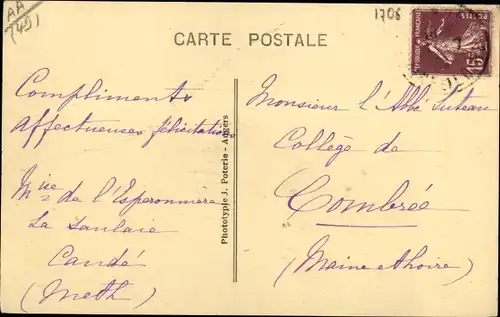 AA
7491
1706
CARTE POSTALE
POSTES
15
Compliments
affectueuses félicitations
Mise de l'Esperonnière
La Saulaie
Candé
(Meth)
Phototypie J. Poterie - Angers
Monsieur l'Abbé Suteau
Collège de
Combrée
(Maine et Loire)